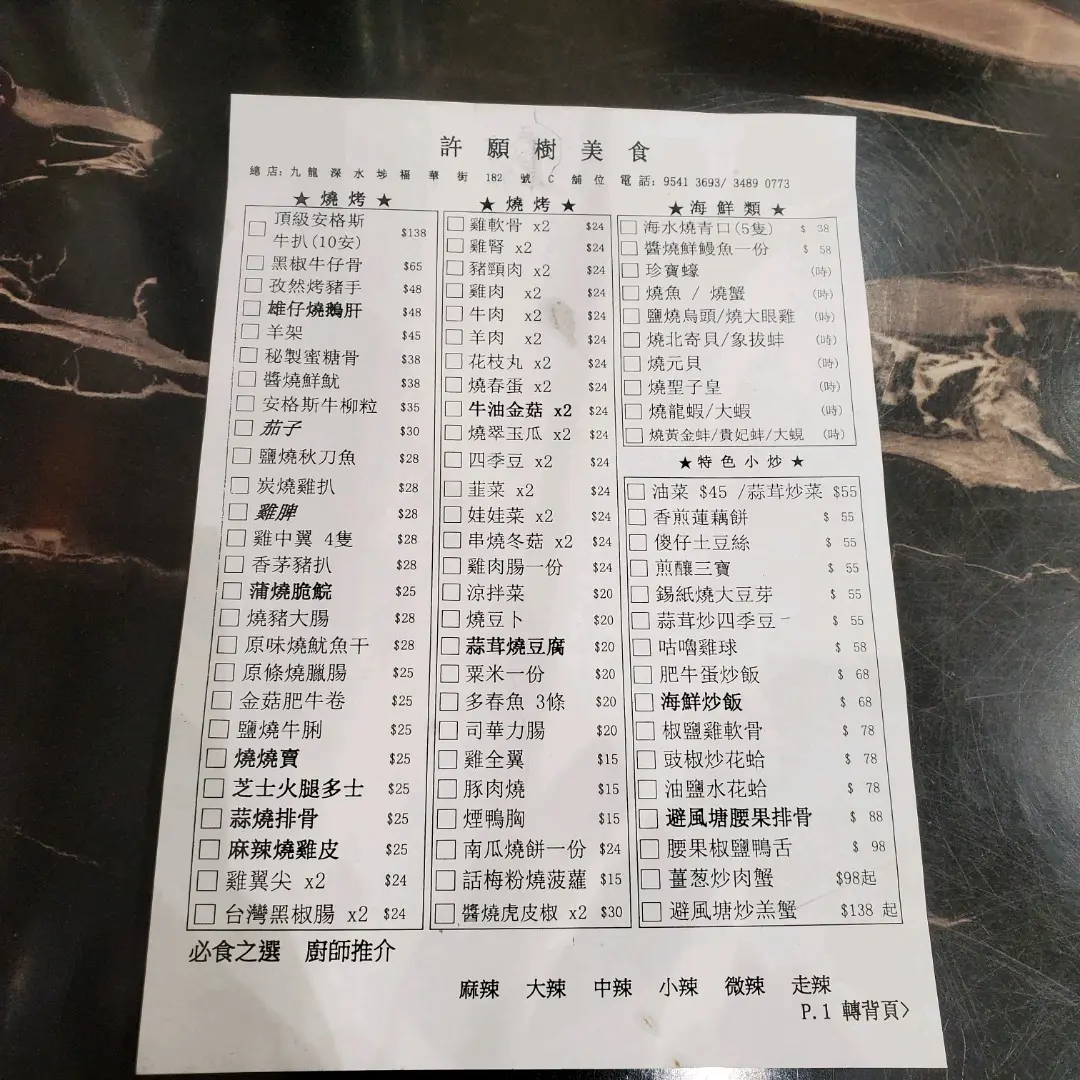 許願樹美食
總店:九龍深水埗福華街 182 號 C 舖位 電話: 9541 3693/ 3489 0773
★ 燒烤 ★
頂級安格斯
牛扒(10安) $138
黑椒牛仔骨 $65
孜然烤豬手 $48
雄仔燒鵝肝 $48
羊架 $45
秘製蜜糖骨 $38
醬燒鮮魷 $38
安格斯牛柳粒 $35
茄子 $30
鹽燒秋刀魚 $28
炭燒雞扒 $28
雞脾 $28
雞中翼 4隻 $28
香茅豬扒 $28
蒲燒脆鯇 $25
燒豬大腸 $28
原味燒魷魚干 $28
原條燒臘腸 $25
金菇肥牛卷 $25
鹽燒牛脷 $25
燒燒賣 $25
芝士火腿多士 $25
蒜燒排骨 $25
麻辣燒雞皮 $25
雞翼尖 x2 $24
台灣黑椒腸 x2 $24
★ 燒烤 ★
雞軟骨 x2 $24
雞腎 x2 $24
豬頸肉 x2 $24
雞肉 x2 $24
牛肉 x2 $24
羊肉 x2 $24
花枝丸 x2 $24
燒春蛋 x2 $24
牛油金菇 x2 $24
燒翠玉瓜 x2 $24
四季豆 x2 $24
韮菜 x2 $24
娃娃菜 x2 $24
串燒冬菇 x2 $24
雞肉腸一份 $24
涼拌菜 $20
燒豆卜 $20
蒜茸燒豆腐 $20
粟米一份 $20
多春魚 3條 $20
司華力腸 $20
雞全翼 $15
豚肉燒 $15
煙鴨胸 $15
南瓜燒餅一份 $24
話梅粉燒菠蘿 $15
醬燒虎皮椒 x2 $30
★海鮮類 ★
海水燒青口(5隻) $ 38
醬燒鮮鰻魚一份 $ 58
珍寶蠔 (時)
燒魚 / 燒蟹 (時)
鹽燒烏頭/燒大眼雞 (時)
燒北寄貝/象拔蚌 (時)
燒元貝 (時)
燒聖子皇 (時)
燒龍蝦/大蝦 (時)
燒黃金蚌/貴妃蚌/大蜆 (時)
★特色小炒★
油菜 $45 /蒜茸炒菜 $55
香煎蓮藕餅 $ 55
傻仔土豆絲 $ 55
煎釀三寶 $ 55
錫紙燒大豆芽 $ 55
蒜茸炒四季豆 $ 55
咕嚕雞球 $ 58
肥牛蛋炒飯 $ 68
海鮮炒飯 $ 68
椒鹽雞軟骨 $ 78
豉椒炒花蛤 $ 78
油鹽水花蛤 $ 78
避風塘腰果排骨 $ 88
腰果椒鹽鴨舌 $ 98
薑葱炒肉蟹 $98起
避風塘炒羔蟹 $138 起
必食之選 廚師推介
麻辣 大辣 中辣 小辣 微辣 走辣
P.1 轉背頁>